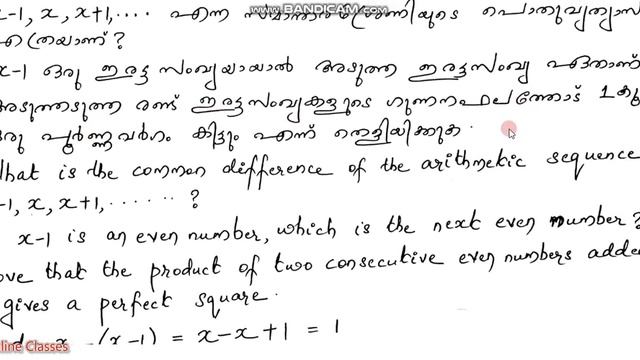 x-1, x, x+1, .... എന്ന സമാന്തരശ്രേണിയുടെ പൊതുവ്യത്യാസം
www.BANDICAM.com
എത്രയാണ്?
x-1 ഒരു ഇരട്ട സംഖ്യയായാൽ അടുത്ത ഇരട്ട സംഖ്യ ഏതാണ്
അടുത്തടുത്ത രണ്ട് ഇരട്ട സംഖ്യകളുടെ ഗുണനഫലത്തോട് 1 കൂ
ഒരു പൂർണ്ണവർഗം കിട്ടും എന്ന് തെളിയിക്കുക.
What is the common difference of the arithmetic sequence
-1, x, x+1, ...... ?
x-1 is an even number, which is the next even number?
ove that the product of two consecutive even numbers added
gives a perfect square.
x - (x-1) = x-x+1 = 1
line Classes